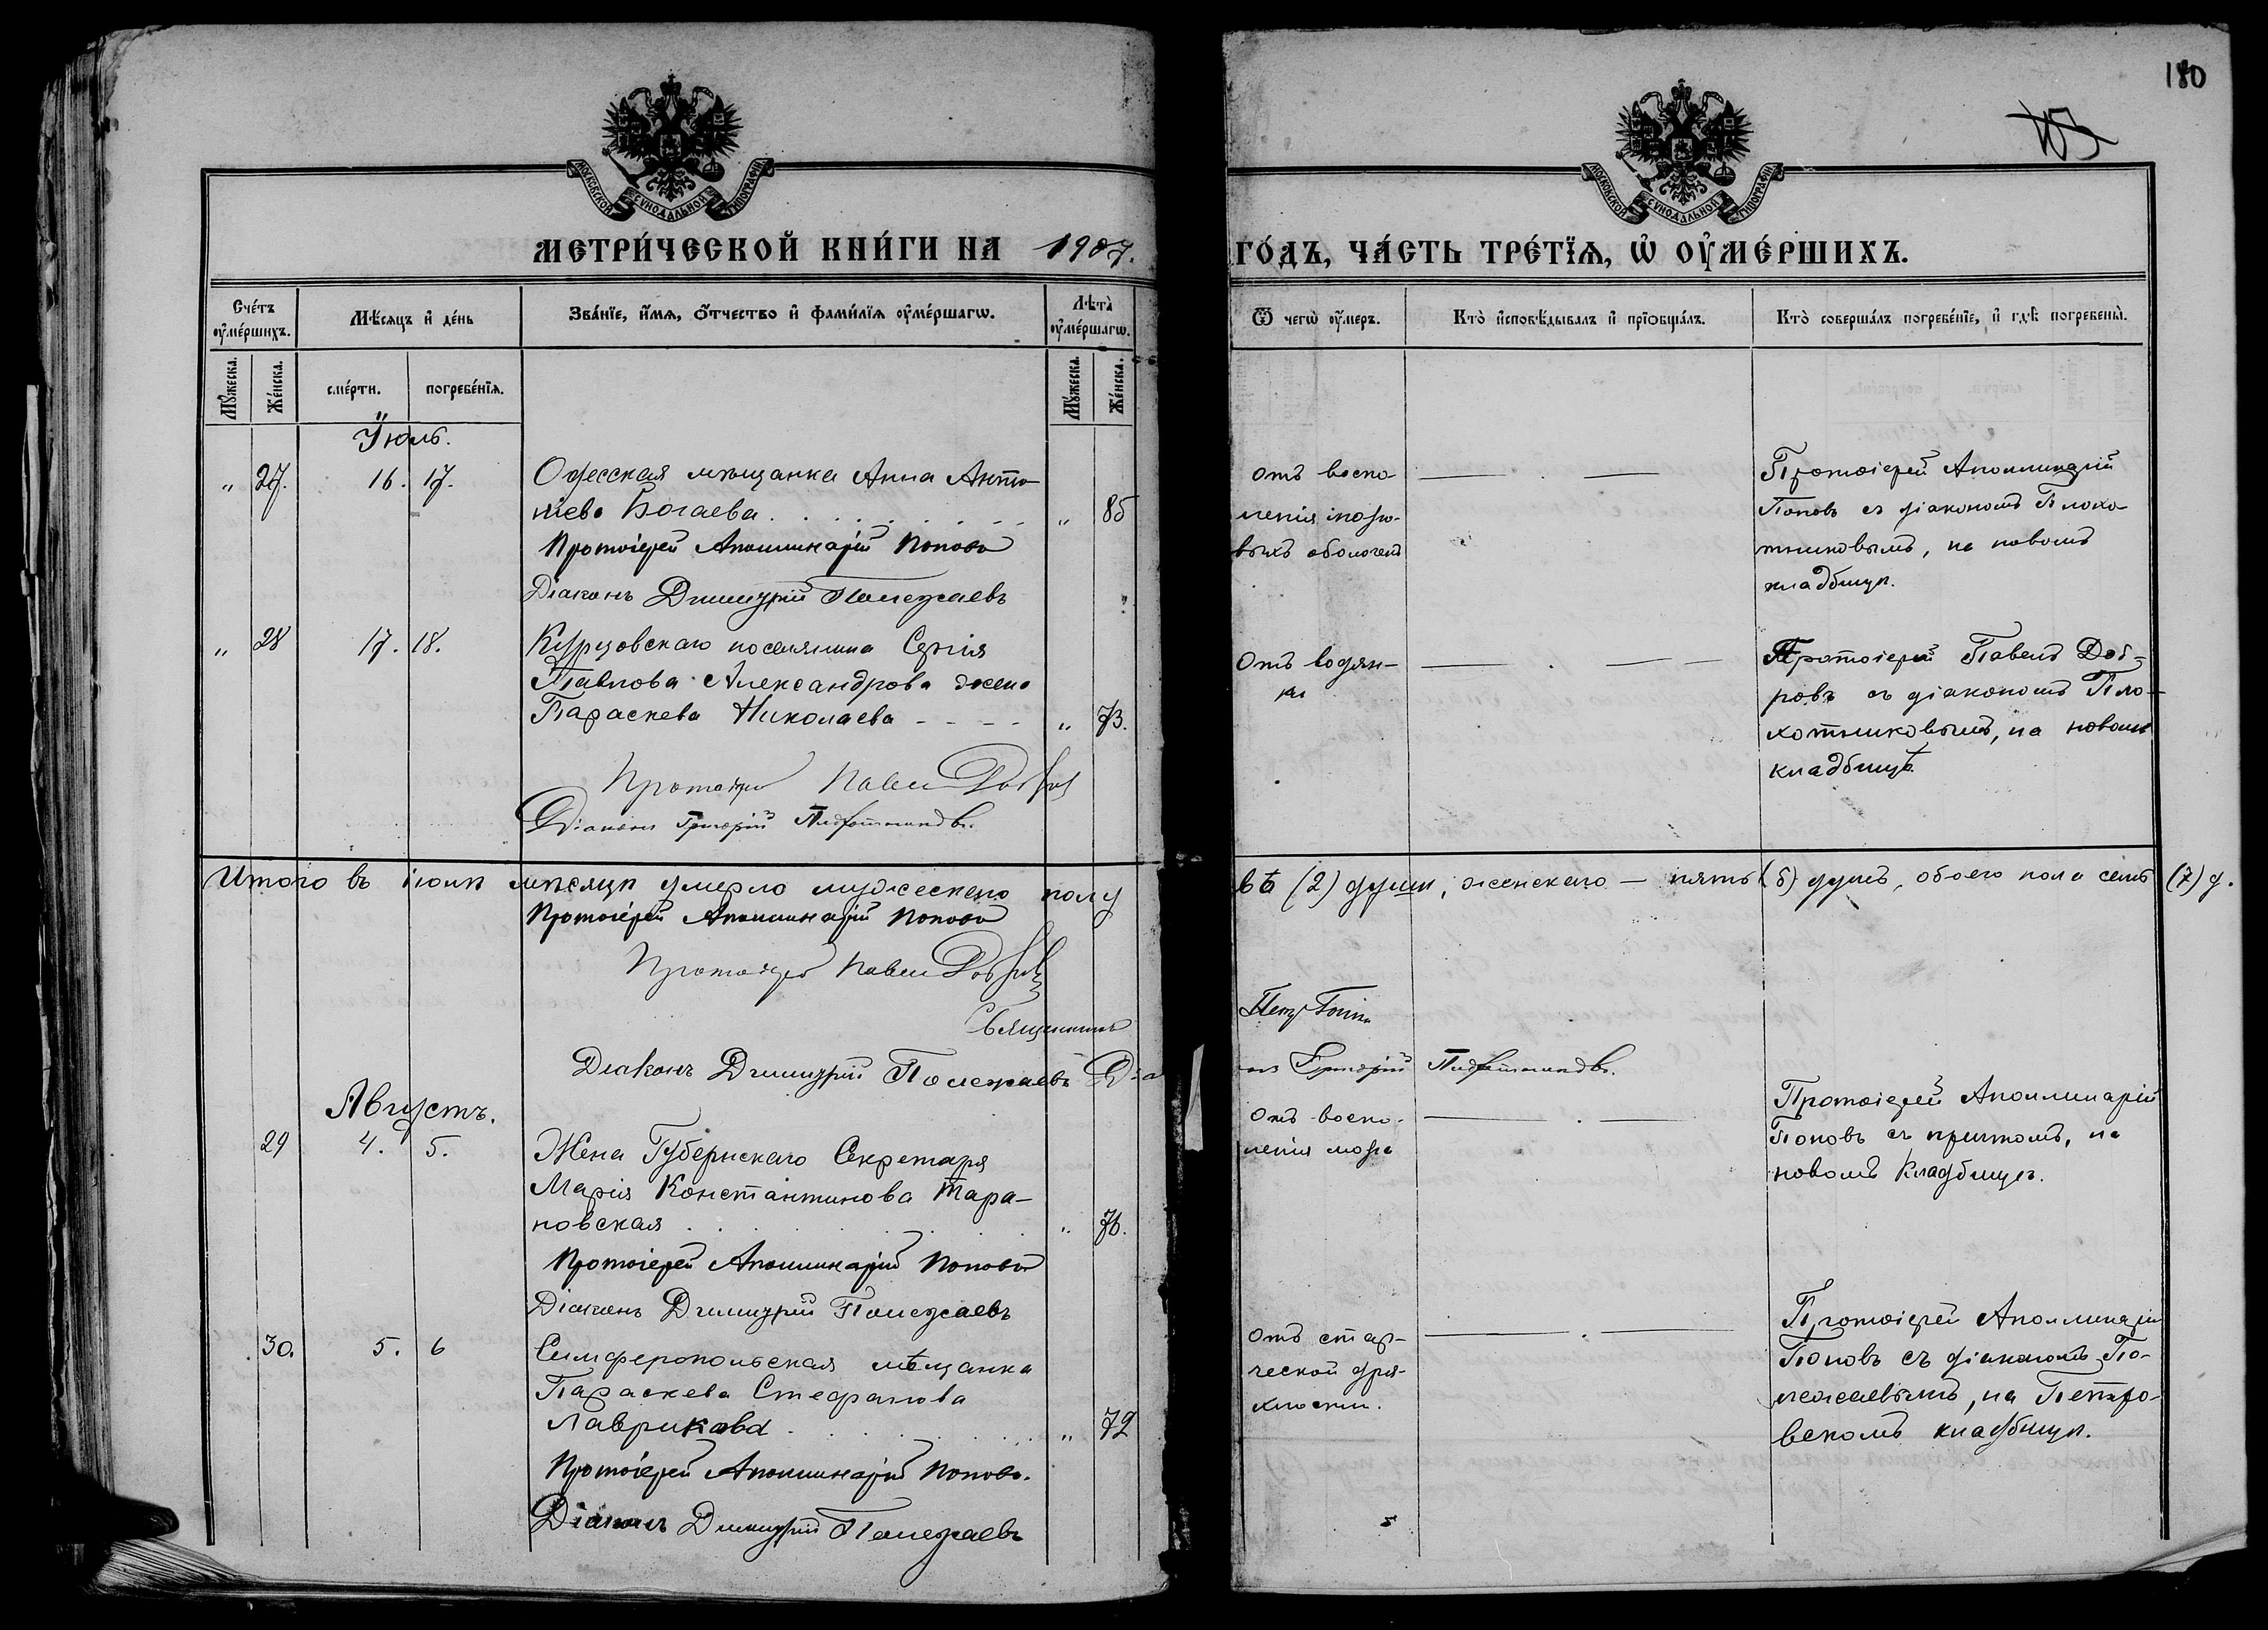 180
105
МОСКОВСКОЙ СѴНОДАЛЬНОЙ ТИПОГРАФІИ
МОСКОВСКОЙ СѴНОДАЛЬНОЙ ТИПОГРАФІИ
МЕТРИ́ЧЕСКОЙ КНИ́ГИ НА 1907.
ГО́ДЪ, ЧА́СТЬ ТРЕ́ТЇѦ, Ѡ҆ ОУ҆МЕ́РШИХЪ.
Счетъ оумершихъ.
Мѣсяцъ и день
Званїе, имѧ, отчество и фамилїѧ оумершагѡ.
Лѣта оумершагѡ.
Ѿ чегѡ оумеръ.
Кто исповѣдывалъ и прїобщалъ.
Кто совершалъ погребенїе, и гдѣ погребены.
Мужеска.
Женска.
смерти.
погребенїѧ.
Мужеска.
Женска.
Іюль.
" 27. 16. 17.
Одесская мѣщанка Анна Анто-
ніева Богаева . . . . . . . . " 85
Протоіерей Аполлинарій Поповъ
Діаконъ Димитрій Полежаевъ
отъ воспа-
ленія мозго-
выхъ оболочекъ
Протоіерей Аполлинарій
Поповъ съ діакономъ Плохо-
тниковымъ, на новомъ
кладбищѣ.
" 28 17. 18.
Курцовскаго поселянина Сергія
Павлова Александрова жена
Параскева Николаева - - - - " 73.
Протоіерей Павелъ Добровъ
Діаконъ Григорій Плохотниковъ.
Отъ водян-
ки
Протоіерей Павелъ Доб-
ровъ съ діакономъ Пло-
хотниковымъ, на новомъ
кладбищѣ.
Итого въ іюлѣ мѣсяцѣ умерло мужескаго полу
двѣ (2) души, женскаго — пять (5) душъ, обоего пола семь (7) д.
Протоіерей Аполлинарій Поповъ
Протоіерей Павелъ Добровъ
Священникъ
Петръ
Діаконъ Димитрій Полежаевъ Діа
конъ Григорій Плохотниковъ.
Августъ.
29 4. 5.
Жена Губернскаго Секретаря
Марія Константинова Тара-
новская . . . . . . " 76.
Протоіерей Аполлинарій Поповъ
Діаконъ Димитрій Полежаевъ
отъ воспа-
ленія мозга
Протоіерей Аполлинарій
Поповъ съ причтомъ, на
новомъ кладбищѣ.
30. 5. 6
Симферопольская мѣщанка
Параскева Стефанова
Лаврикова . . . . . . . " 72
Протоіерей Аполлинарій Поповъ.
Діаконъ Димитрій Полежаевъ
отъ стар-
ческой дря-
хлости.
Протоіерей Аполлинарій
Поповъ съ діакономъ По-
лежаевымъ, на Петро-
вскомъ кладбищѣ.